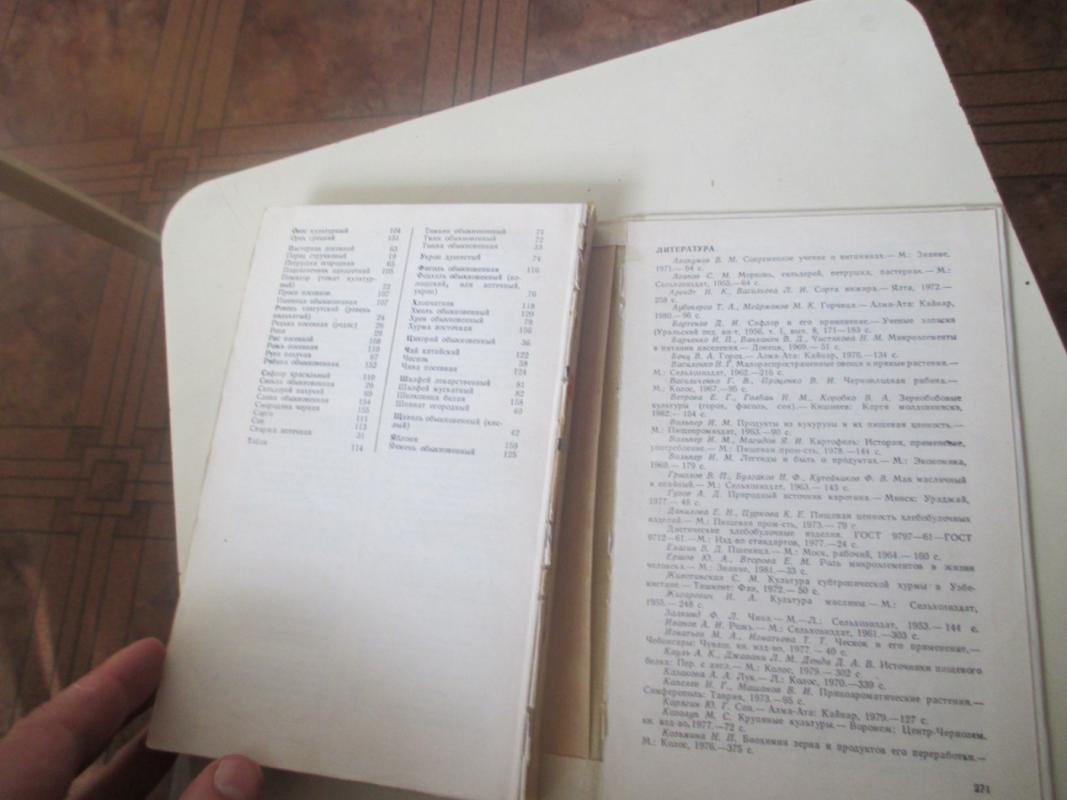 Овес культурный 104
Орех грецкий 151
Пастернак посевной 63
Перец стручковый 19
Петрушка огородная 65
Подсолнечник однолетний 105
Помидор (томат культурный) 22
Просо посевное 107
Пшеница обыкновенная 107
Ревень тангутский (ревень
24
Редька посевная (редис) 26
Репа 29
Рис посевной 108
Рожь посевная 110
Рута пахучая 67
Рябина обыкновенная 152
Сафлор красильный 110
Свекла обыкновенная 29
Сельдерей пахучий 69
Слива обыкновенная 154
Смородина черная 155
Сорго 111
Соя 113
Спаржа аптечная 31
Табак 114
Тимьян обыкновенный 71
Тмин обыкновенный 72
Тыква обыкновенная 33
Укроп душистый 74
Фасоль обыкновенная 116
Фенхель обыкновенный (во-
лошский, или аптечный,
укроп) 76
Хлопчатник 118
Хмель обыкновенный 120
Хрен обыкновенный 78
Хурма восточная 156
Цикорий обыкновенный 36
Чай китайский 122
Чеснок 38
Чина посевная 124
Шалфей лекарственный 81
Шалфей мускатный 82
Шелковица белая 158
Шпинат огородный 40
Щавель обыкновенный (кис-
лый) 42
Яблоня 159
Ячмень обыкновенный 125
ЛИТЕРАТУРА
В. М. Современное учение о витаминах.— М.: Знание,
1971.— 64 с.
Агапов С. М. Морковь, сельдерей, петрушка, пастернак.— М.:
Сельхозиздат, 1953.—64 с.
Арендт Н. К., Васильева Л. И. Сорта инжира.— Ялта, 1972.—
258 с.
Аубакиров Т. А., Мейрманов М. К. Горчица.— Алма-Ата: Кайнар,
1980.—96 с.
Бартенев Д. И. Сафлор и его применение.— Ученые записки
(Уральский пед. ин-т, 1956, т. 1, вып. 8, 171—183 с.
Барченко И. П., Ванханен В. Д., Чистякова Н. М. Микроэлементы
в питании населения.— Донецк, 1969.— 51 с.
Бенц В. А. Горох.— Алма-Ата: Кайнар, 1976.—134 с.
Василенко Н. Г. Малораспространенные овощи и пряные растения.—
М.: Сельхозиздат, 1962.—216 с.
Васильченко Г. В., Проценко В. И. Черноплодная рябина.—
М.: Колос, 1967.—95 с.
Ветрова Е. Г., Голбан Н. М., Коробко В. А. Зернобобовые
культуры (горох, фасоль, соя).— Кишинев: Картя молдовеняскэ,
1982.— 154 с.
Вольпер И. М. Продукты из кукурузы и их пищевая ценность.—
М.: Пищепромиздат, 1963.—90 с.
Вольпер И. М., Магидов Я. И. Картофель: История, применение,
употребление.— М.: Пищевая пром-сть, 1978.—144 с.
Вольпер И. М. Легенды и быль о продуктах.— М.: Экономика,
1969.— 179 с.
В. П., Булгаков Н. Ф., Кутейников Ф. В. Мак масличный
и опийный.— М.: Сельхозиздат, 1963.— 143 с.
Гуров А. Д. Природный источник каротина.— Минск: Ураджай,
1977.— 48 с.
Данилова Е. Н., Цуркова К. Е. Пищевая ценность хлебобулочных
изделий.— М.: Пищевая пром-сть, 1973.— 79 с.
Диетические хлебобулочные изделия. ГОСТ 9797—61—ГОСТ
9712—61.— М.: Изд-во стандартов, 1977.—24 с.
Елагин В. Д. Пшеница.— М.: Моск. рабочий, 1964.— 160 с.
Ершов Ю. А., Второва Е. М. Роль микроэлементов в жизни
человека.— М.: Знание, 1981.—33 с.
Животинская С. М. Культура субтропической хурмы в Узбе-
кистане.— Ташкент: Фан, 1972.— 50 с.
Жигаревич И. А. Культура маслины.— М.: Сельхозиздат,
1955.— 248 с.
Залкинд Ф. Л. Чина.— М.—Л.: Сельхозиздат, 1953.— 144 с.
Иванов А. И. Рожь.— М.: Сельхозиздат, 1961.—303 с.
Игнатьев М. А., Игнатьева Т. Т. Чеснок и его применение.—
Чебоксары: Чуваш. кн. изд-во, 1977.— 40 с.
Кауль А. К., Джавани Л. М. Денди Д. А. В. Источники пищевого
белка: Пер. с англ.— М.: Колос, 1979.— 302 с.
Казакова А. А. Лук.— Л.: Колос, 1970.—339 с.
Капелев И. Г., Машанов В. И. Пряноароматические растения.—
Симферополь: Таврия, 1973.—95 с.
Карягин Ю. Г. Соя.— Алма-Ата: Кайнар, 1979.—127 с.
М. С. Крупяные культуры.— Воронеж: Центр-Чернозем.
кн. изд-во, 1977.—72 с.
Козьмина Н. П. Биохимия зерна и продуктов его переработки.—
М.: Колос, 1976.—375 с.
271